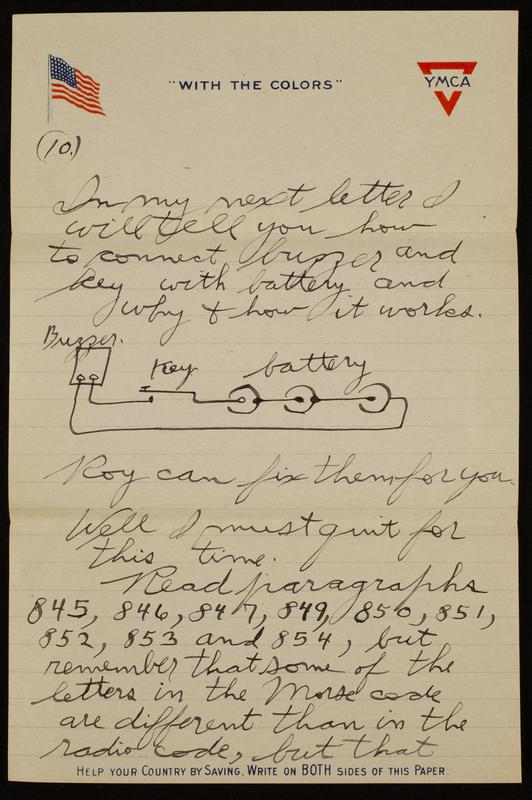 "WITH THE COLORS"
YMCA
(10.)
In my next letter I
will tell you how
to connect buzzer and
key with battery and
why & how it works.
Buzzer.
Key battery
Roy can fix them for you.
Well I must quit for
this time.
Read paragraphs
845, 846, 847, 849, 850, 851,
852, 853 and 854, but
remember that some of the
letters in the Morse code
are different than in the
radio code, but that
HELP YOUR COUNTRY BY SAVING. WRITE ON BOTH SIDES OF THIS PAPER.